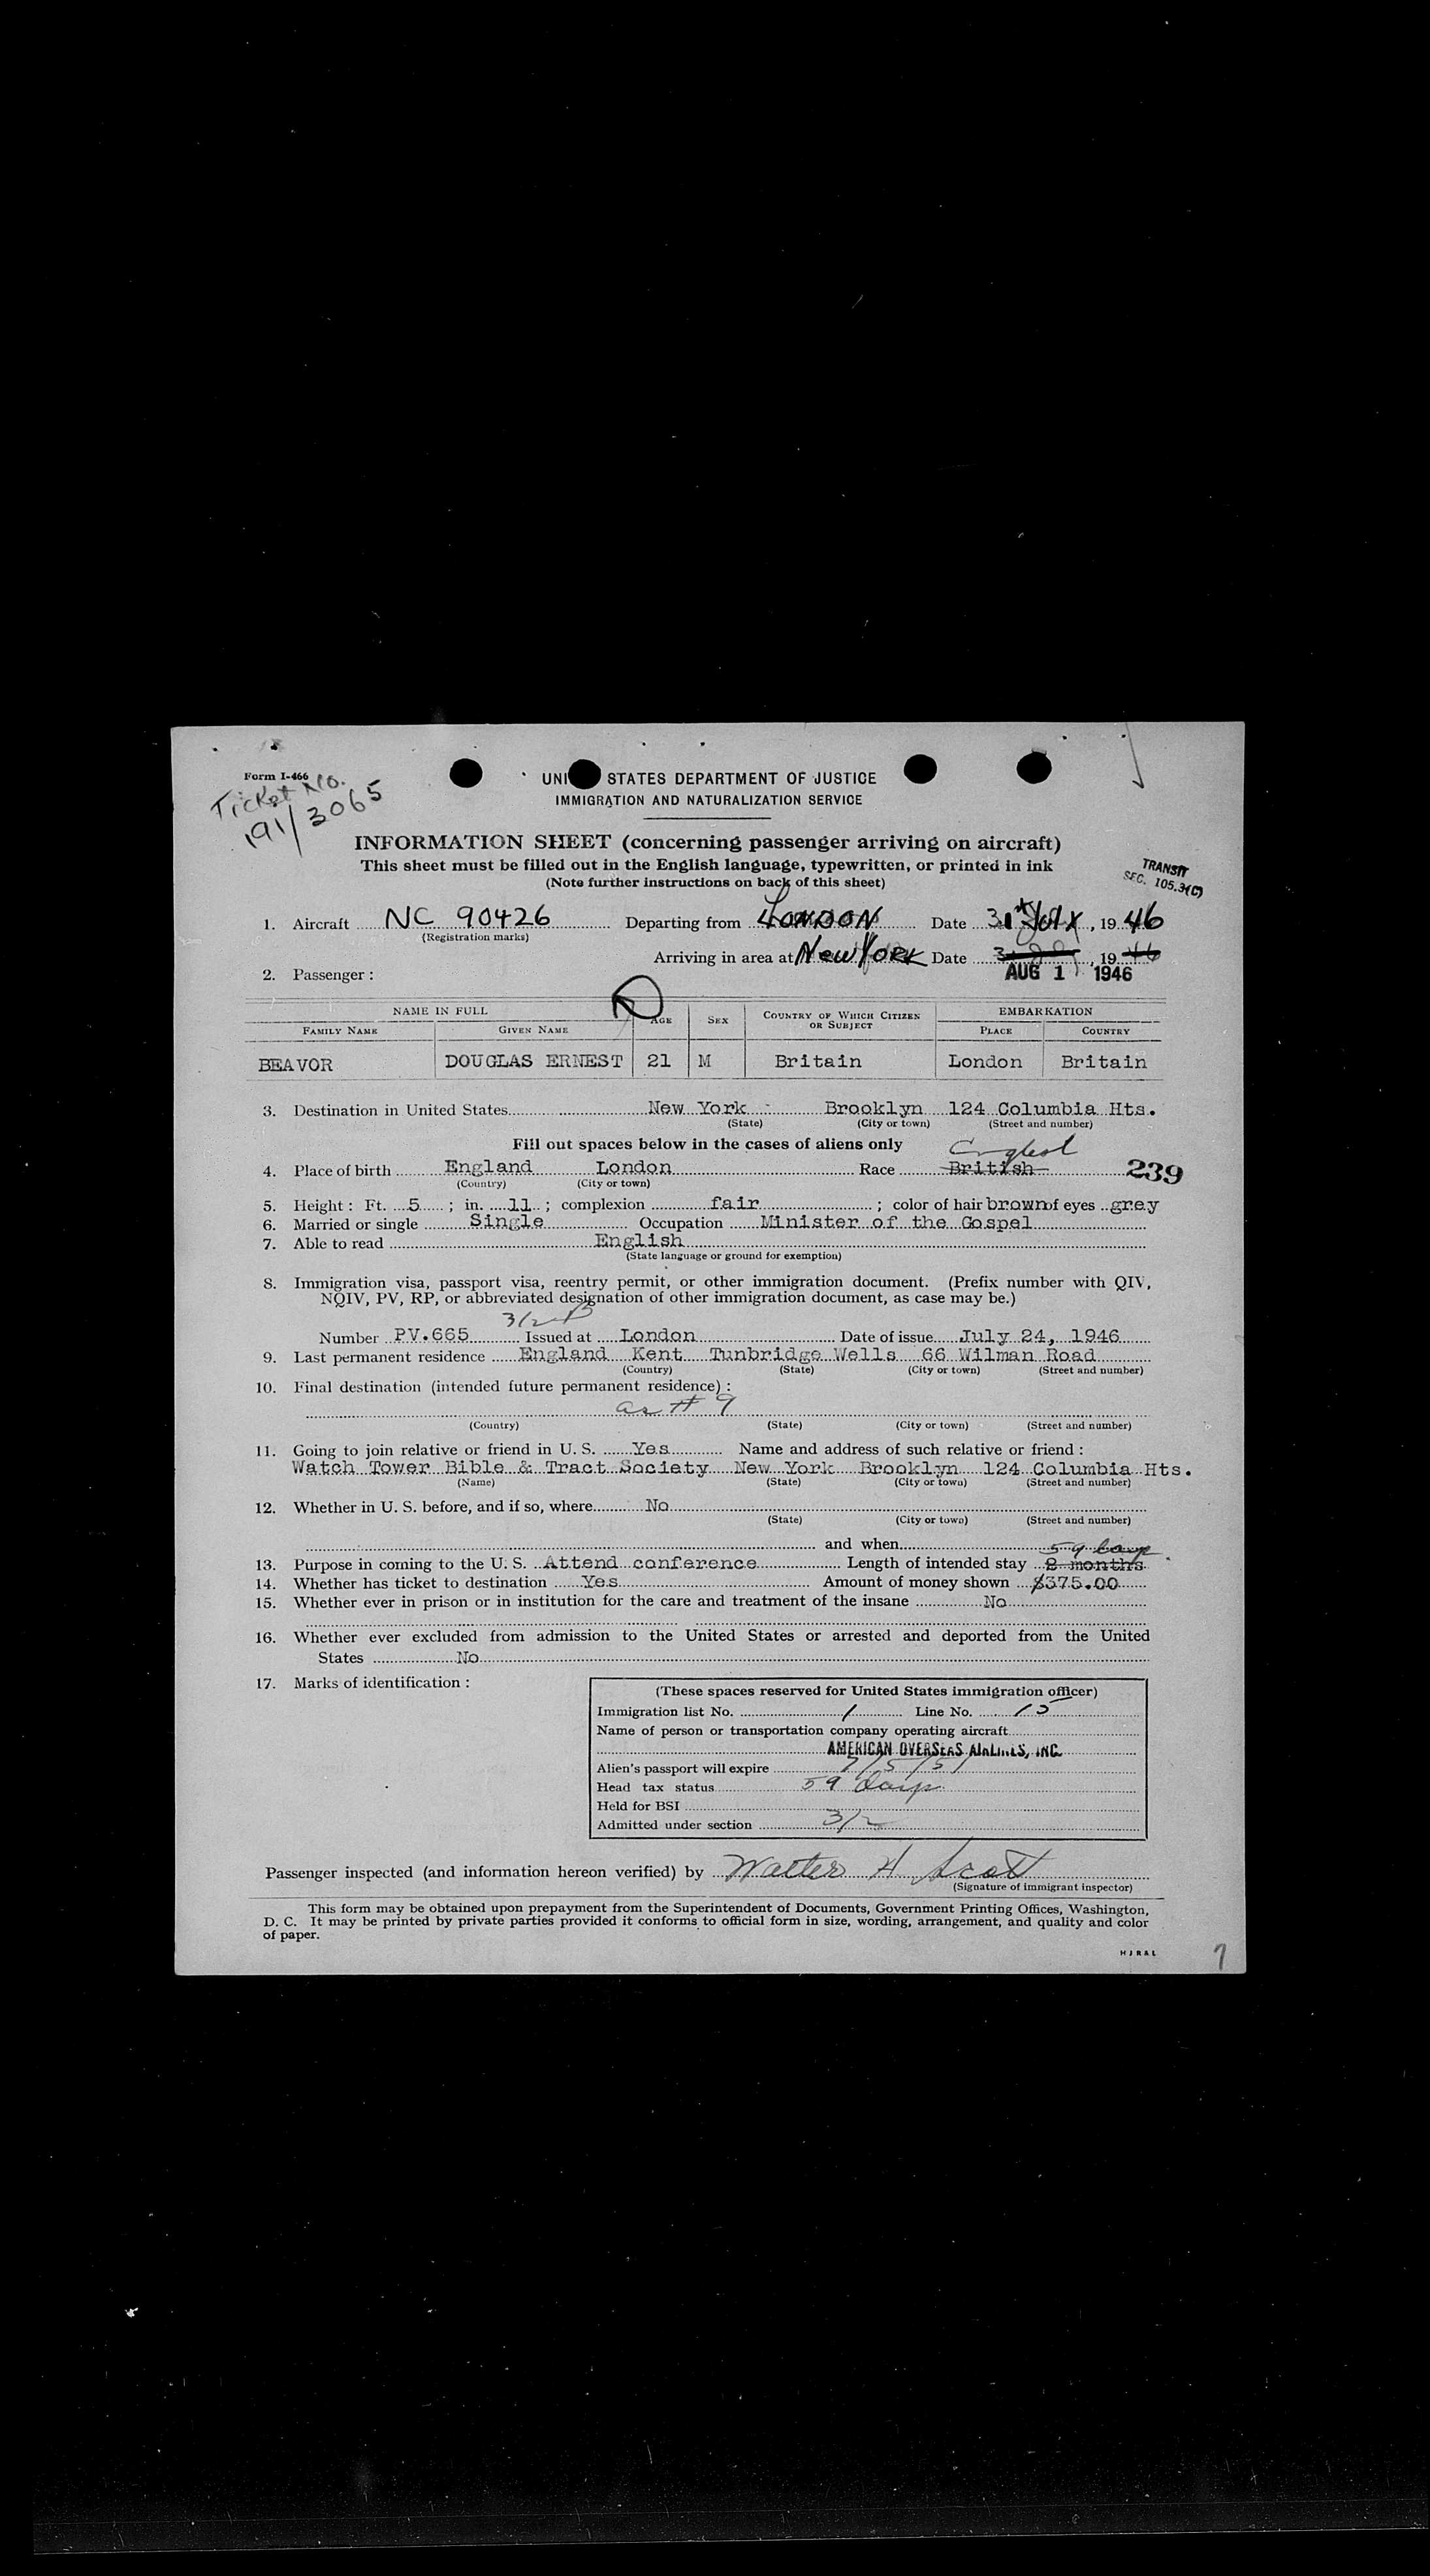 Form I-466
Ticket No.
191/3065
UNI STATES DEPARTMENT OF JUSTICE
IMMIGRATION AND NATURALIZATION SERVICE
INFORMATION SHEET (concerning passenger arriving on aircraft)
This sheet must be filled out in the English language, typewritten, or printed in ink
(Note further instructions on back of this sheet)
TRANSIT
SEC. 105.3(C)
1. Aircraft NC 90426 Departing from LONDON Date 31st July, 1946
(Registration marks)
Arriving in area at New York Date 19 46
AUG 1 1946
2. Passenger :
NAME IN FULL AGE SEX COUNTRY OF WHICH CITIZEN OR SUBJECT EMBARKATION
FAMILY NAME GIVEN NAME PLACE COUNTRY
BEAVOR DOUGLAS ERNEST 21 M Britain London Britain
3. Destination in United States New York - Brooklyn 124 Columbia Hts.
(State) (City or town) (Street and number)
Fill out spaces below in the cases of aliens only
English
4. Place of birth England London Race British 239
(Country) (City or town)
5. Height : Ft. 5 ; in. 11 ; complexion fair ; color of hair brown of eyes grey
6. Married or single Single Occupation Minister of the Gospel
7. Able to read English
(State language or ground for exemption)
8. Immigration visa, passport visa, reentry permit, or other immigration document. (Prefix number with QIV,
NQIV, PV, RP, or abbreviated designation of other immigration document, as case may be.)
3/2
Number PV.665 Issued at London Date of issue July 24, 1946
9. Last permanent residence England Kent Tunbridge Wells 66 Wilman Road
(Country) (State) (City or town) (Street and number)
10. Final destination (intended future permanent residence) :
as # 9
(Country) (State) (City or town) (Street and number)
11. Going to join relative or friend in U. S. Yes Name and address of such relative or friend :
Watch Tower Bible & Tract Society New York Brooklyn 124 Columbia Hts.
(Name) (State) (City or town) (Street and number)
12. Whether in U. S. before, and if so, where No
(State) (City or town) (Street and number)
and when
59 days
13. Purpose in coming to the U. S. Attend conference Length of intended stay 2 months
14. Whether has ticket to destination Yes Amount of money shown $375.00
15. Whether ever in prison or in institution for the care and treatment of the insane No
16. Whether ever excluded from admission to the United States or arrested and deported from the United
States No
17. Marks of identification :
(These spaces reserved for United States immigration officer)
Immigration list No. 1 Line No. 15
Name of person or transportation company operating aircraft
AMERICAN OVERSEAS AIRLINES, INC.
Alien's passport will expire 7/5/51
Head tax status 59 days
Held for BSI
Admitted under section 3/2
Passenger inspected (and information hereon verified) by Walter H Scott
(Signature of immigrant inspector)
This form may be obtained upon prepayment from the Superintendent of Documents, Government Printing Offices, Washington,
D. C. It may be printed by private parties provided it conforms to official form in size, wording, arrangement, and quality and color
of paper.
HJRAL
7